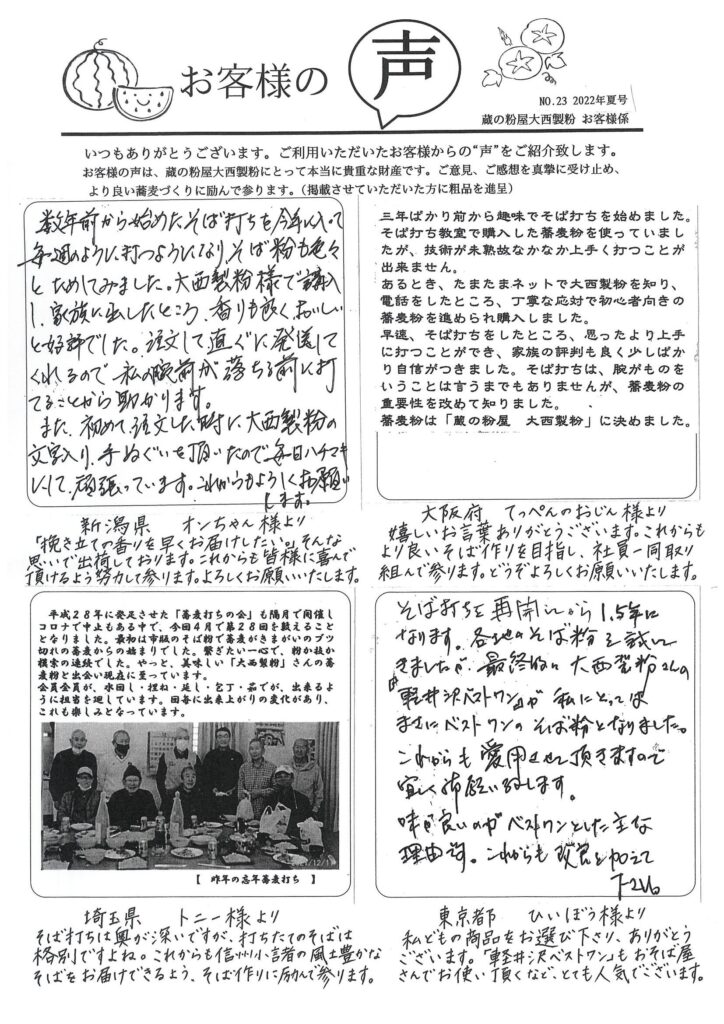 お客様の 声
NO.23 2022年夏号
蔵の粉屋大西製粉 お客様係
いつもありがとうございます。ご利用いただいたお客様からの“声”をご紹介致します。
お客様の声は、蔵の粉屋大西製粉にとって本当に貴重な財産です。ご意見、ご感想を真摯に受け止め、
より良い蕎麦づくりに励んで参ります。（掲載させていただいた方に粗品を進呈）
数年前から始めたそば打ちを今年に入って
毎週のように打つようになり、そば粉も色々
とためしてみました。大西製粉様で購入
し、家族に出したところ、香りも良く、おいしい
と好評でした。注文して直ぐに発送して
くれるので、私の腕前が落ちる前に打
てることから助かります。
また、初めて注文した時に大西製粉の
文字入り、手ぬぐいを頂いたので毎日ハチマキ
にして、頑張っています。これからもよろしくお願い
します。
新潟県 オンちゃん様より
「挽き立ての香りを早くお届けしたい。」そんな
思いで出荷しております。これからも皆様に喜んで
頂けるよう努力して参ります。よろしくお願いいたします。
三年ばかり前から趣味でそば打ちを始めました。
そば打ち教室で購入した蕎麦粉を使っていまし
たが、技術が未熟故なかなか上手く打つことが
出来ません。
あるとき、たまたまネットで大西製粉を知り、
電話をしたところ、丁寧な応対で初心者向きの
蕎麦粉を進められ購入しました。
早速、そば打ちをしたところ、思ったより上手
に打つことができ、家族の評判も良く少しばか
り自信がつきました。そば打ちは、腕がものを
いうことは言うまでもありませんが、蕎麦粉の
重要性を改めて知りました。
蕎麦粉は「蔵の粉屋 大西製粉」に決めました。
大阪府 てっぺんのおじん様より
嬉しいお言葉ありがとうございます。これからも
より良いそば作りを目指し、社員一同取り
組んで参ります。どうぞよろしくお願いいたします。
平成２８年に発足させた「蕎麦打ちの会」も隔月で開催し
コロナで中止もある中で、今回４月で第２８回を数えること
となりました。最初は市販のそば粉で蕎麦がきまがいのブツ
切れの蕎麦からの始まりでした。繋ぎたい一心で、粉か技か
模索の連続でした。やっと、美味しい「大西製粉」さんの蕎
麦粉と出会い現在に至っています。
会員全員が、水回し・捏ね・延し・包丁・茹でが、出来るよ
うに担当を廻しています。回毎に出来上がりの変化があり、
これも楽しみとなっています。
【 昨年の忘年蕎麦打ち 】
埼玉県 トニー様より
そば打ちは奥が深いですが、打ちたてのそばは
格別ですよね。これからも信州小諸の風土豊かな
そばをお届けできるよう、そば作りに励んで参ります。
そば打ちを再開してから1.5年に
なります。各地のそば粉を試して
きましたが、最終的に大西製粉さんの
"軽井沢ベストワン"が私にとっては
まさにベストワンのそば粉となりました。
これからも愛用させて頂きますので
宜しくお願い致します。
味が良いのがベストワンとした主な
理由です。これからも
東京都 ひいぼう様より
私どもの商品をお選び下さり、ありがとう
ございます。「軽井沢ベストワン」もおそば屋
さんでお使い頂くなど、とても人気でございます。